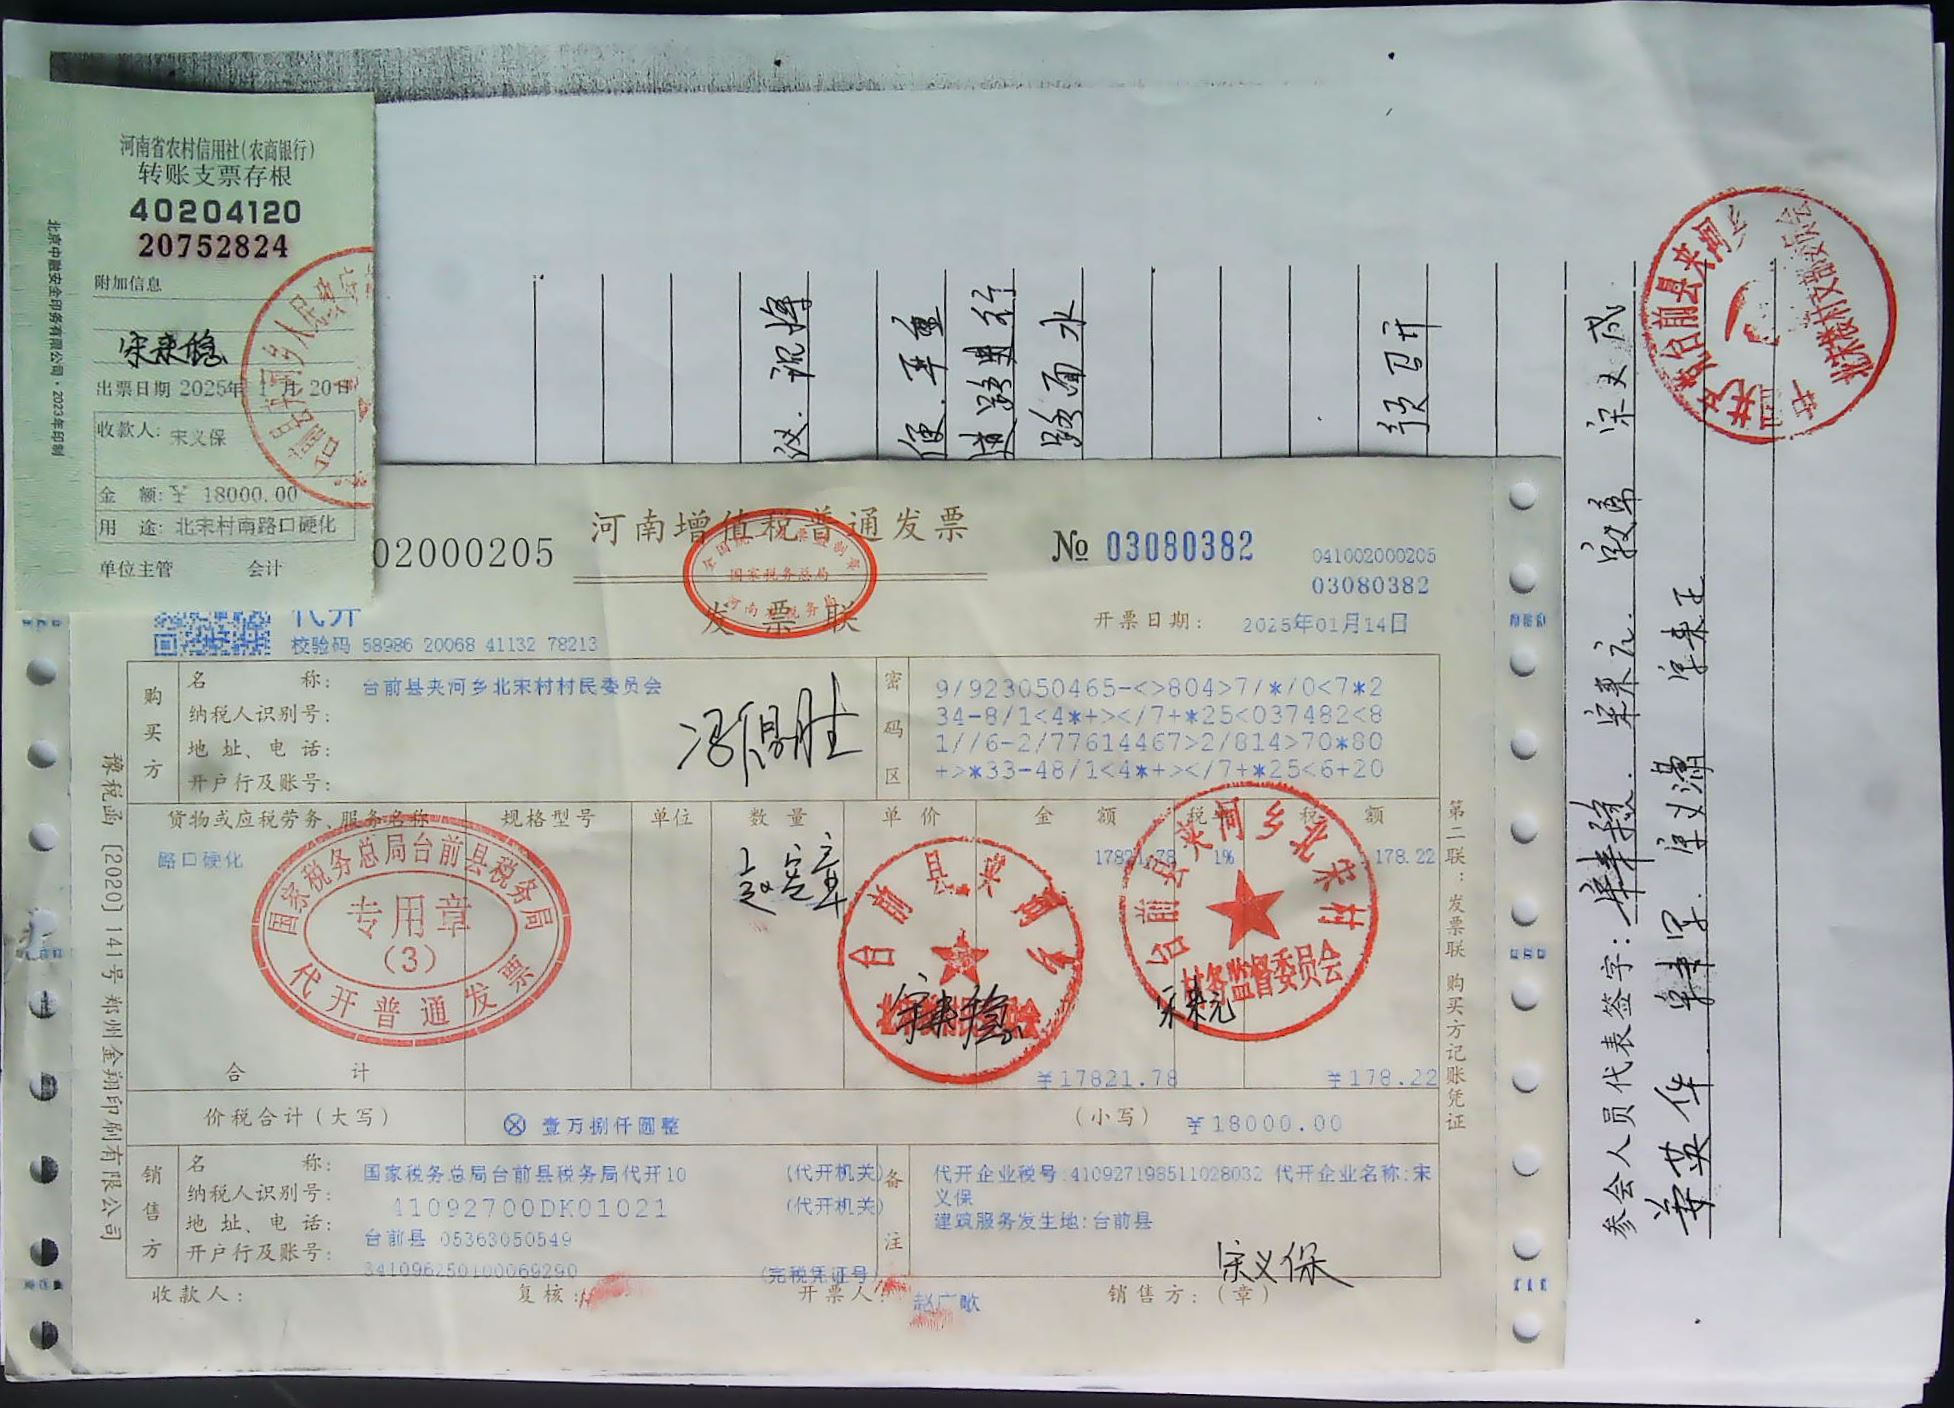 河南省农村信用社(农商银行)
转账支票存根
40204120
20752824
附加信息
宋来稳
出票日期 2025年 1月 20日
收款人: 宋义保
金 额: ¥ 18000.00
用 途: 北宋村南路口硬化
单位主管 会计
北京中融安全印务有限公司·2023年印制
议.
便.
路面水
02000205
河南增值税普通发票
发票联
国家税务总局
№ 03080382
041002000205
03080382
开票日期: 2025年01月14日
代开
校验码 58986 20068 41132 78213
购买方
名 称: 台前县夹河乡北宋村村民委员会
纳税人识别号:
地 址、电 话:
开户行及账号:
冯得胜
密码区
9/923050465-<>804>7/*/0<7*2
34-8/1<4*+></7+*25<037482<8
1//6-2/77614467>2/814>70*80
+>*33-48/1<4*+></7+*25<6+20
货物或应税劳务、服务名称 规格型号 单位 数 量 单 价 金 额 税率 税 额
路口硬化 17821.78 1% 178.22
国家税务总局台前县税务局
专用章
(3)
代开普通发票
台前县夹河乡
宋来稳
台前县夹河乡北宋村
村务监督委员会
宋来元
合 计 ¥17821.78 ¥178.22
价税合计(大写) ⊗ 壹万捌仟圆整 (小写) ¥18000.00
销售方
名 称: 国家税务总局台前县税务局代开10 (代开机关)
纳税人识别号: 41092700DK01021 (代开机关)
地 址、电 话: 台前县 05363050549
开户行及账号: 341096250100069290 (完税凭证号)
备注
代开企业税号:410927198511028032 代开企业名称:宋
义保
建筑服务发生地:台前县
宋义保
收款人: 复核: 开票人: 赵广歌 销售方:(章)
第二联:发票联 购买方记账凭证
豫税函[2020]141号 郑州金翔印刷有限公司
参会人员代表签字: 宋来稳. 宋来元.
姜英华. 宋来正